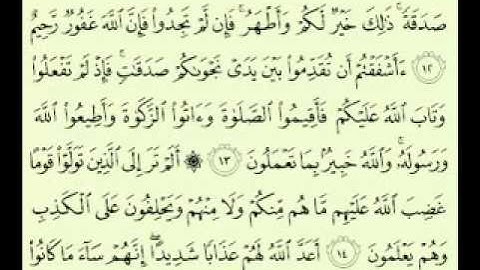 صَدَقَةً ۚ ذَٰلِكَ خَيْرٌ لَّكُمْ وَأَطْهَرُ ۚ فَإِن لَّمْ تَجِدُوا۟ فَإِنَّ ٱللَّهَ غَفُورٌ رَّحِيمٌ
١٢ ءَأَشْفَقْتُمْ أَن تُقَدِّمُوا۟ بَيْنَ يَدَىْ نَجْوَىٰكُمْ صَدَقَـٰتٍ ۚ فَإِذْ لَمْ تَفْعَلُوا۟
وَتَابَ ٱللَّهُ عَلَيْكُمْ فَأَقِيمُوا۟ ٱلصَّلَوٰةَ وَءَاتُوا۟ ٱلزَّكَوٰةَ وَأَطِيعُوا۟ ٱللَّهَ
وَرَسُولَهُۥ ۚ وَٱللَّهُ خَبِيرٌۢ بِمَا تَعْمَلُونَ ١٣ ۞ أَلَمْ تَرَ إِلَى ٱلَّذِينَ تَوَلَّوْا۟ قَوْمًا
غَضِبَ ٱللَّهُ عَلَيْهِم مَّا هُم مِّنكُمْ وَلَا مِنْهُمْ وَيَحْلِفُونَ عَلَى ٱلْكَذِبِ
وَهُمْ يَعْلَمُونَ ١٤ أَعَدَّ ٱللَّهُ لَهُمْ عَذَابًا شَدِيدًا ۖ إِنَّهُمْ سَآءَ مَا كَانُوا۟